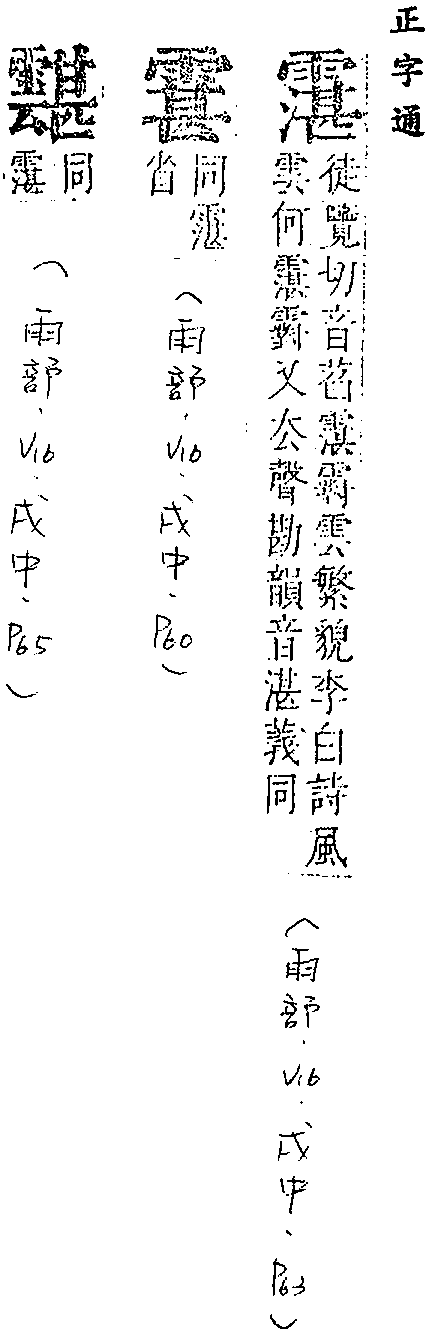 正字通
霮
徒覽切音萏霮䨴雲繁貌李白詩風
雲何霮䨴又厺聲勘韻音湛義同
（雨部．V16．戌中．P63）
同霮
省
（雨部．V16．戌中．P60）
同
霮
（雨部．V16．戌中．P65）